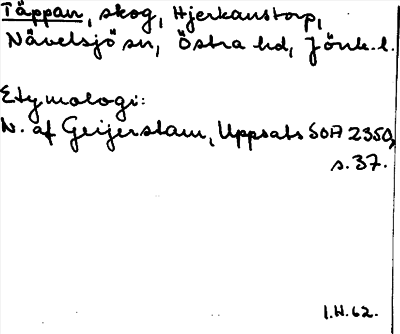 Täppan, skog, Hjerkanstorp,
Nävelsjö sn, Östra hd, Jönk. l.
Etymologi:
N. af Geijerstam, Uppsats SOA 2350,
s. 37.
I.H.62.